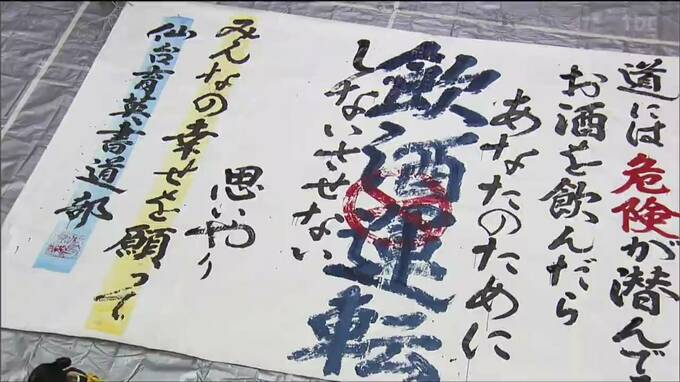 道には危険が潜んで
お酒を飲んだら
あなたのために
飲酒運転
しないさせない
思いやり
みんなの幸せを願って
仙台育英書道部
tbc